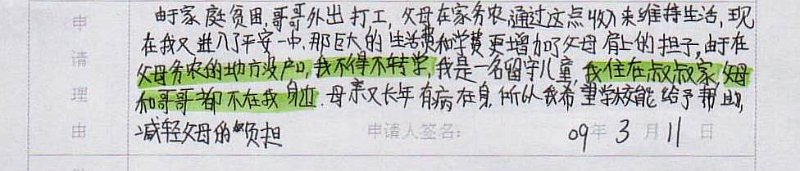 申请理由
由于家庭贫困,哥哥外出打工,父母在家务农,通过这点收入来维持生活,现
在我又进入了平安一中.那巨大的生活费和学费更增加了父母肩上的担子,由于在
父母务农的地方没户口,我不得不转学,我是一名留守儿童,我住在叔叔家,父母
和哥哥都不在我身边.母亲又长年有病在身,所以我希望学校能给予帮助,
减轻父母的负担
申请人签名: 09年3月11日